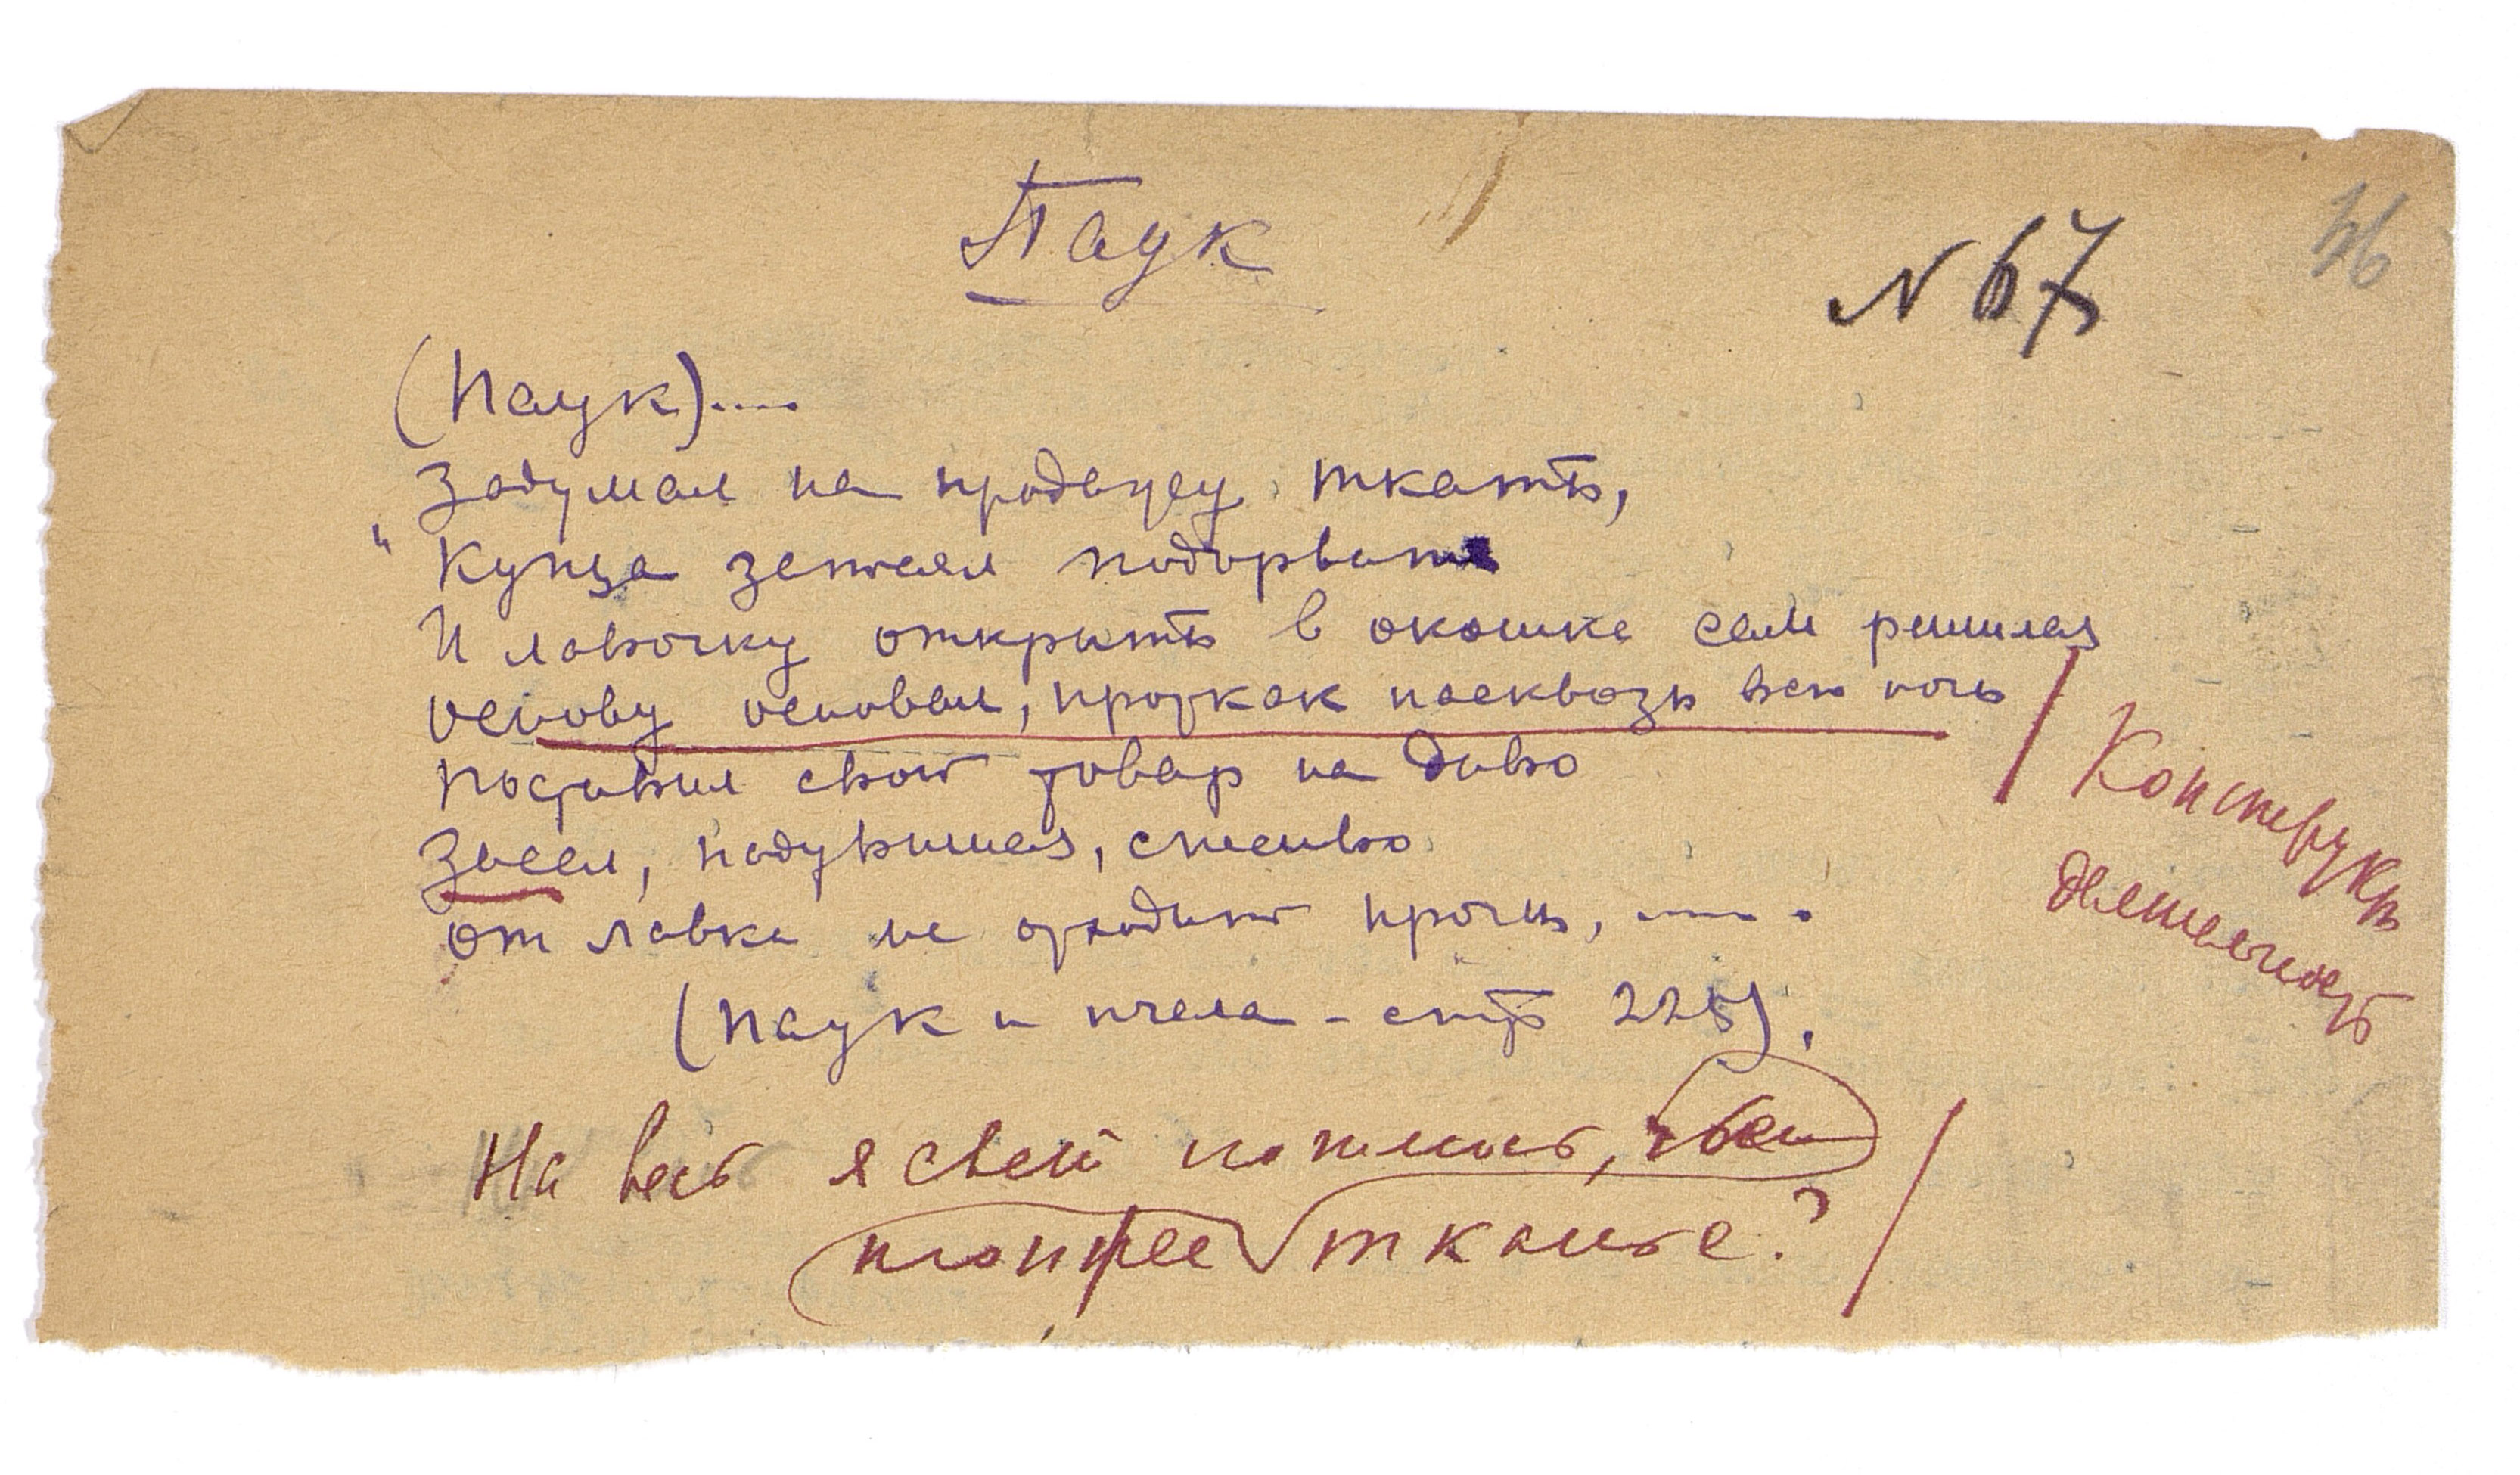 Паук
№ 67
36
(Паук)....
Задумал на продажу ткать,
" Купца затеял подорвать
И лавочку открыть в окошке сам решился
основу основал, проткал насквозь всю ночь
поставил свой товар на диво
Засел, надувшися, спесиво
от лавки не отходит прочь, .... .
(Паук и пчела - стр 225).
Конструкт
деятельность
На весь я свет пошлюсь, чье
тканье?